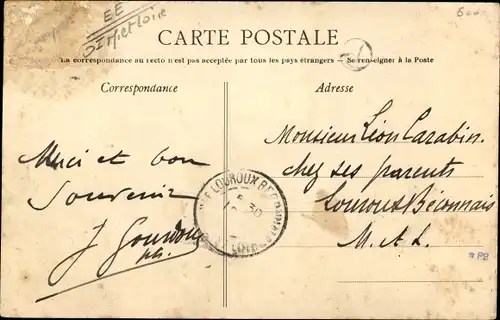 EE
CARTE POSTALE
La correspondance au recto n'est pas acceptée par tous les pays étrangers. — Se renseigner à la Poste
Correspondance
Adresse
Merci et bon
Souvenir
J Gourdon
Monsieur Léon Carabin.
chez ses parents
Louroux Béconnais
M. et L.
LOUROUX BECONNAIS
*PB